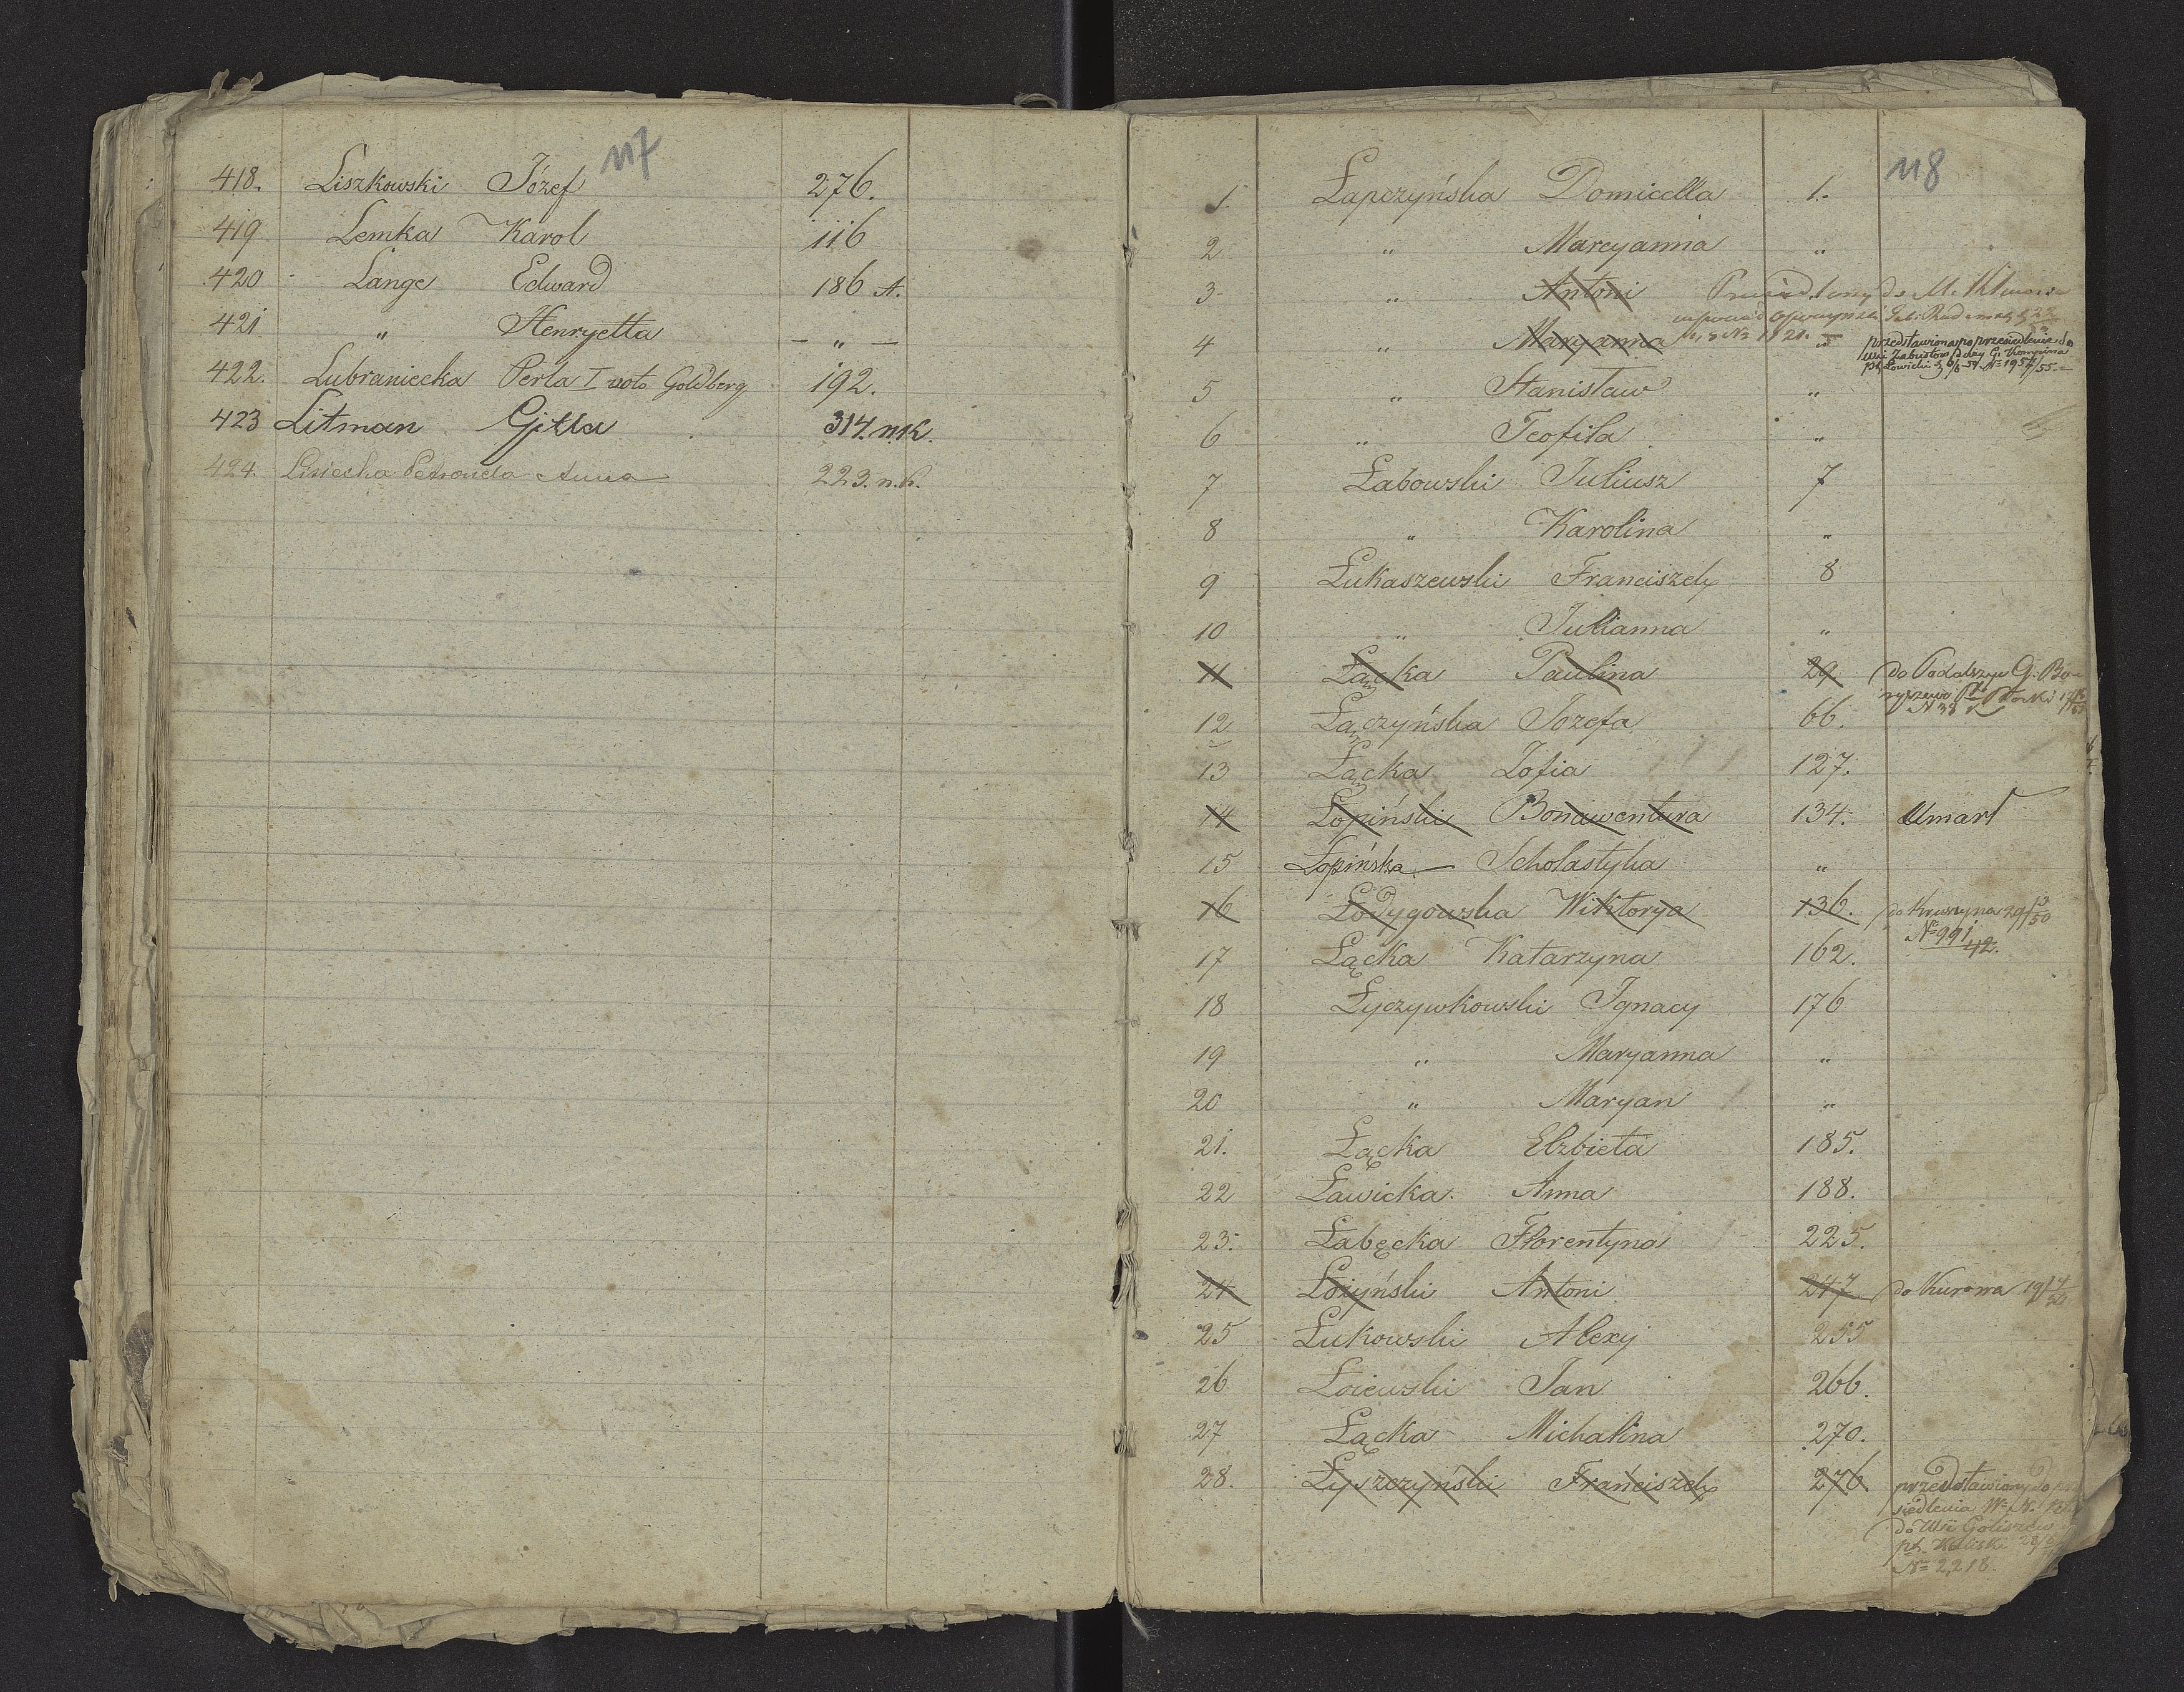 117
418. Liszkowski Józef 276.
419 Lemka Karol 116
420 Lange Edward 186 A.
421 " Henryetta — " —
422. Lubraniecka Perla I voto Goldberg 192.
423 Litman Gitla 314. n.k.
424. Lisiecka Petronela Anna 223. n.k.
118
1. Łapczyńska Domicella 1.
2 " Marcyanna "
3 " Antoni
4 " Maryanna "
przedstawiona po przesiedlenie do
5 " Stanisław "
6 " Teofila "
7 Łabowski Juliusz 7
8 " Karolina "
9 Łukaszewski Franciszek 8
10 " Julianna "
11 Łącka Paulina 29
12 Łączyńska Józefa 66.
13 Łącka Zofia 127.
14 Łopiński Bonawentura 134. Umarł
15 Łopińska — Scholastyka "
16 Łodygowska Wiktorya 136. do Kruszyna 29/3 50
№ 991/42.
17 Łącka Katarzyna 162.
18 Łyczywkowski Ignacy 176
19 " Maryanna "
20 " Maryan "
21. Łącka Elzbieta 185.
22 Ławicka Anna 188.
23. Łabęcka Florentyna 225.
24 Łożyński Antoni 247 do Kurowa
25 Łukowski Alexy 255
26 Łoiewski Jan 266.
27 Łącka Michalina 270.
28. Łyszczyński Franciszek 276 przedstawiony do
siedlenia
do Wsi
№ 2,218.